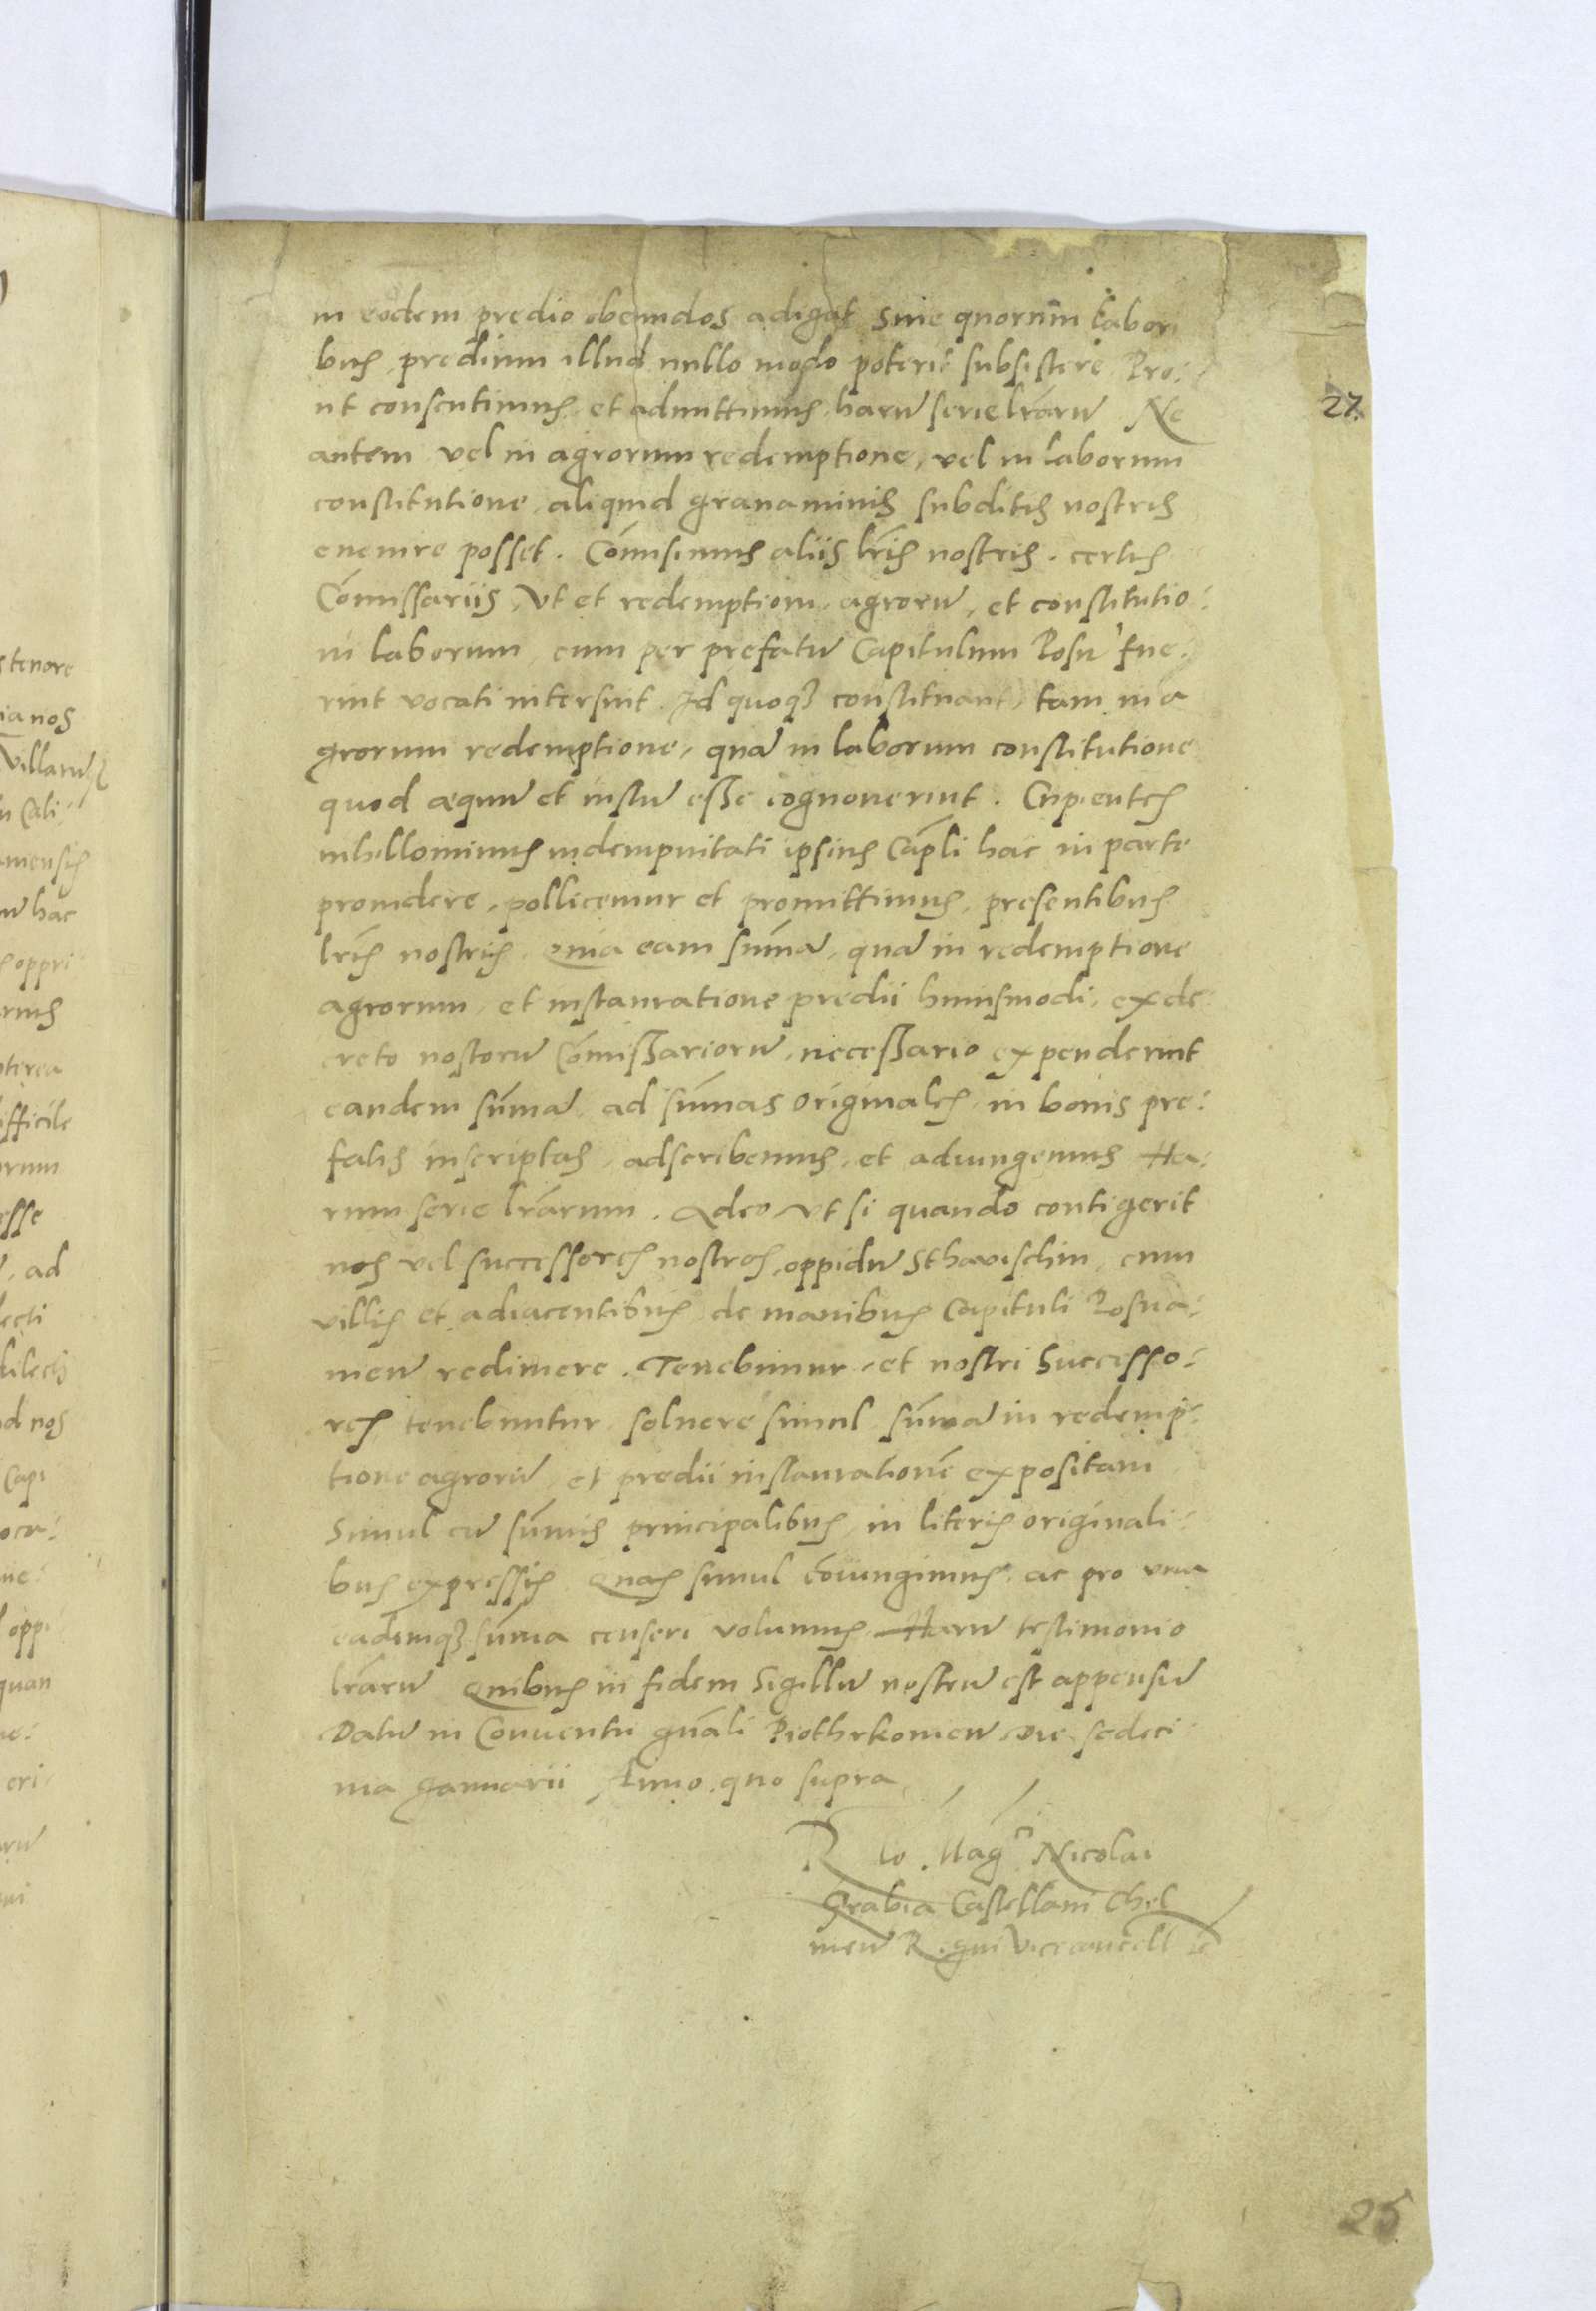 in eodem predio obeundos adigat Sine quorum labori
bus, predium illud nullo modo poterit subsistere Pro:
ut consentimus, et admittimus, harũ serie lrãrũ Ne
autem vel in agrorum redemptione, vel in laborum
constitutione, aliquid grauaminis subditis nostris
euenire posset. Cõmisimus aliis lrĩs nostris. certis
Cõmissariis, Vt et redemptioni, agrorũ, et constitutio:
ni laborum, cum per prefatũ Capitulum Posñ fue:
rint vocati intersint. Id quoqз constituant tam in a
grorum redemptione, quã in laborum constitutione
quod æquũ et iustũ esse cognouerint. Cupientes
nihillominus indempnitati ipsius Capl̃i hac in parte
prouidere, pollicemur et promittimus, presentibus
lrĩs nostris. Quia eam sum̃ã, quã in redemptione
agrorum, et instauratione predii huiusmodi, ex de
creto nostorũ Cõmissariorũ, necessario expenderint
eandem sum̃ã, ad sum̃as originales, in bonis pre:
fatis inscriptas, adscribemus, et adiungemus Ha:
rum serie lrãrum. Adeo vt si quando contigerit
nos vel successores nostros, oppidũ Sthavischin, cum
villis et adiacentibus, de manibus Capituli Posna:
nieñ redimere. Tenebimur, et nostri Successo:
res tenebuntur soluere simul sum̃ã in redemp:
tione agrorũ, et predii instaurationẽ expositam
Simul cũ sum̃is principalibus, in literis originali:
bus expressis. Quas simul cõiungimus, ac pro vna
eademqз sum̃a censeri volumus, Harũ testimonio
lrãrũ Quibus in fidem Sigillũ nostrũ est appensũ
Datũ in Conuentu gñali Piothrkouieñ Die sedeci
ma Januarii Anno quo supra
Rlo Magci Nicolai
Grabia Castellani Chel
meñ Regni Vicecancell
27
25